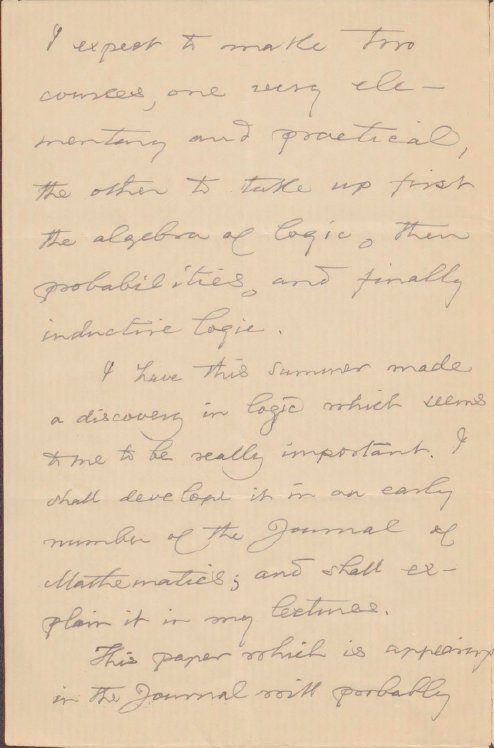 I expect to make two
courses, one very ele-
mentary and practical,
the other to take up first
the algebra of logic, then
probabilities, and finally
inductive logic.
I have this summer made
a discovery in logic which seems
to me to be really important. I
shall develope it in an early
number of the Journal of
Mathematics; and shall ex-
plain it in my lectures.
This paper which is appearing
in the Journal will probably